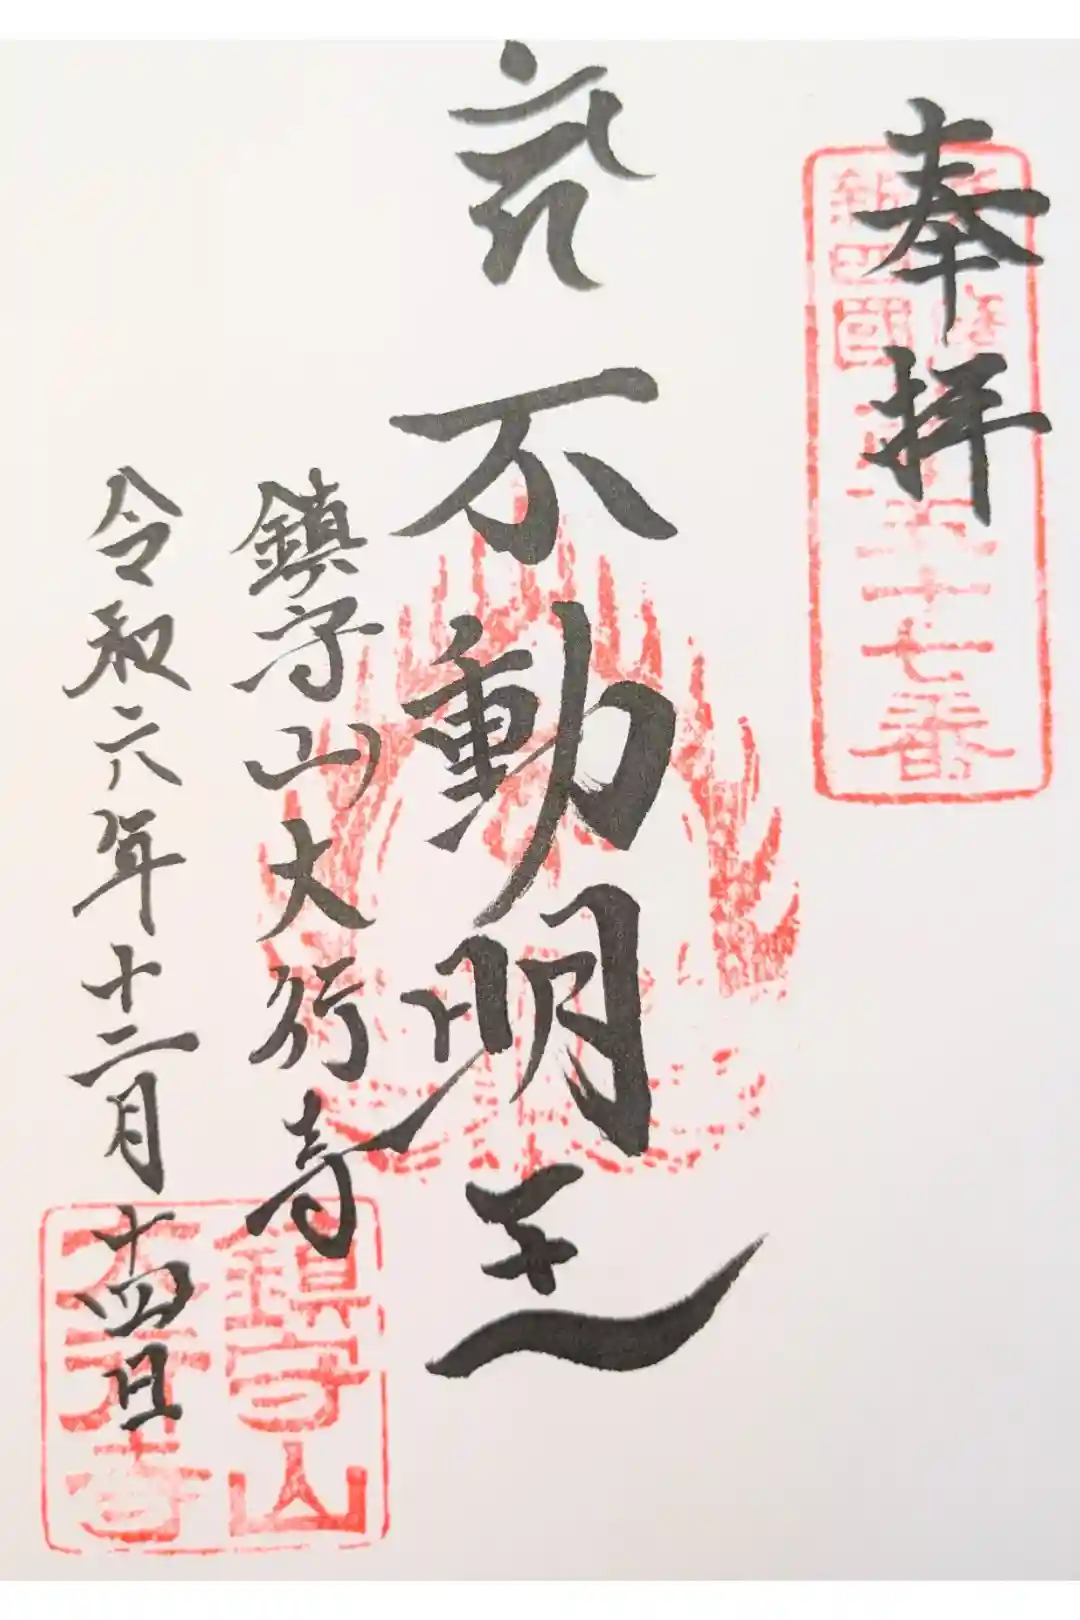 奉拝
新四国
五十七番
不動明王
鎮守山大行寺
令和六年十二月十四日
鎮守山
大行寺